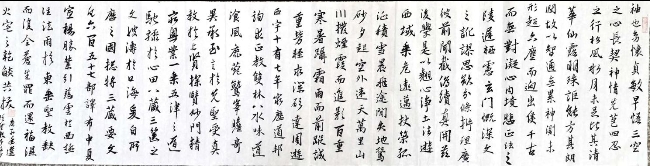 袖也幼懷貞敏早悟三空
之心長契神情先苞四忍
之行松風水月未足比其清
華仙露明珠詎能方其朗
潤故以智通無累神測未
形超六塵而迥出隻千古
而無對凝心内境悲正法之
陵遲栖慮玄門慨深文
之訛謬思欲分條析理廣
彼前聞截偽續真開兹
後學是以翹心淨土往遊
西域乘危遠邁杖策孤
征積雪晨飛途間失地驚
砂夕起空外迷天萬里山
川撥煙霞而進影百重
寒暑躡霜雨而前蹤誠
重勞輕求深願達周遊
西宇十有七年窮歷道邦
詢求正教雙林八水味道
湌風鹿苑鷲峯瞻奇
仰異承至言於先聖受真
教於上賢探賾妙門精
窮奧業一乘五律之道
馳驟於心田八藏三篋之
文波濤於口海爰自所
歷之國總將三藏要文
凡六百五十七部譯布中夏
宣揚勝業引慈雲於西極
注法雨於東垂聖教缺
而復全蒼生罪而還福濕
火宅之乾燄共拔